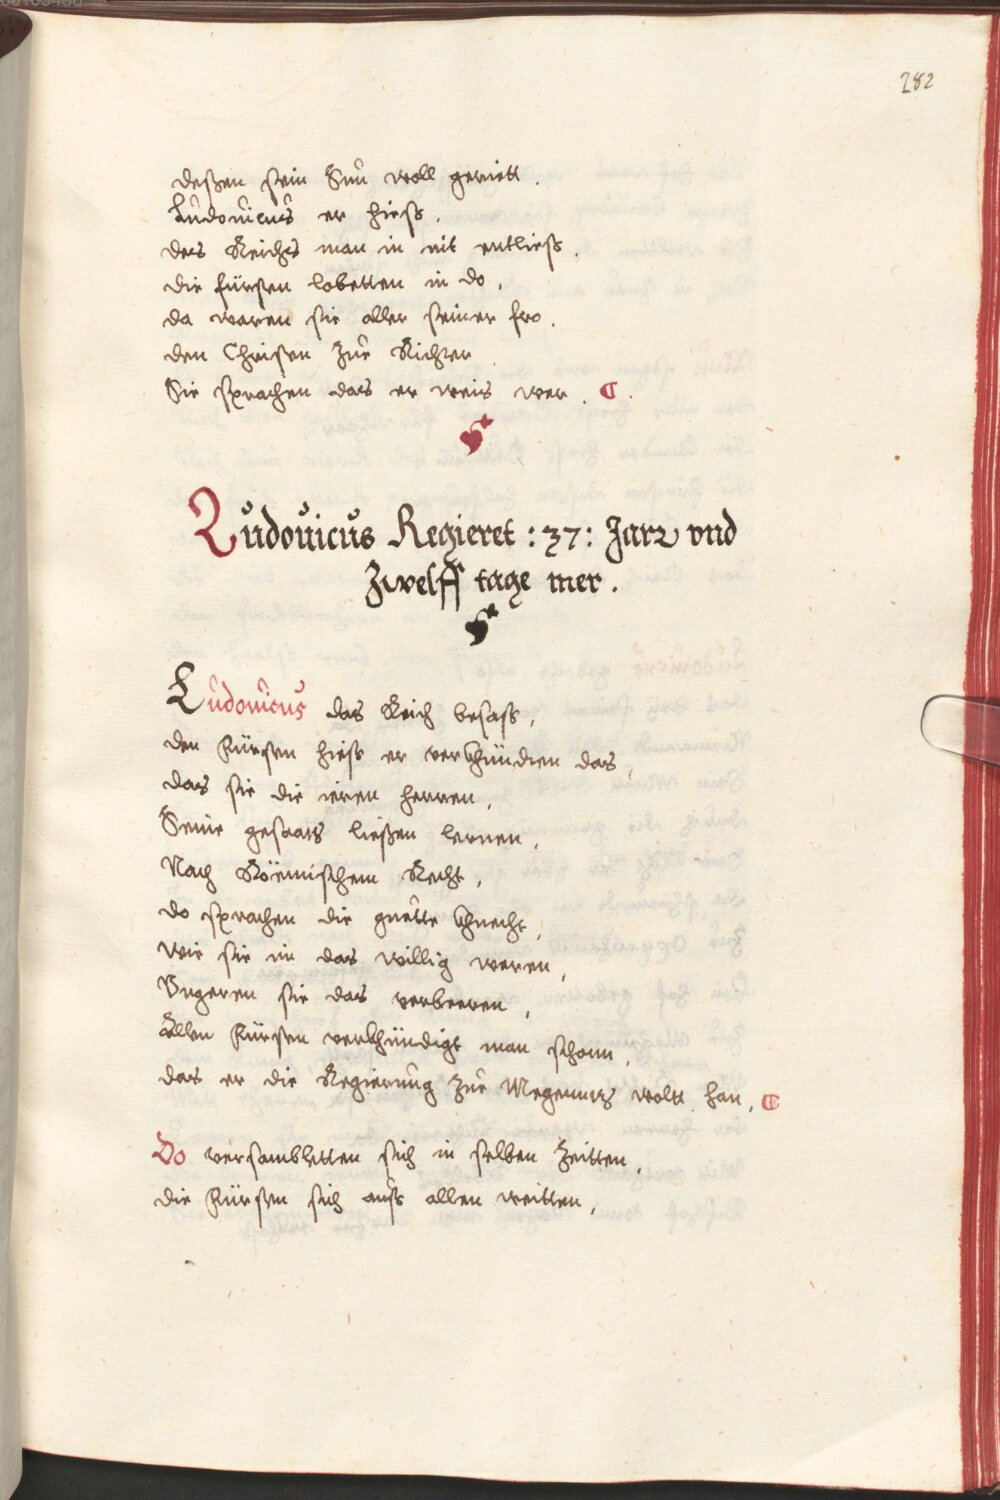 282
deßen sein Sun woll geriett.
Ludouicus er hiess.
des Reichs man in nit entliess.
die fürsten lobetten in do,
da waren sie aller seiner fro.
den Christen zue Richter
Sie sprachen das er weis wer.
Ludouicus Regieret :37: Jarr vnd
Zwelff tage mer.
Ludouicus das Reich besass,
den Fürsten hiess er verkhündien das,
das sie die iren herren,
Seine gesaats ließen lernen,
Nach Röemischem Recht,
do sprachen die guette khnecht,
wie sie im das willig weren,
Vngeren sie das verberen,
Allen Fürsten verkhündigt man schonn,
das er die Regierung zue Megenntz wolt han,
Do versambletten sich in selben Zeitten,
die Fürsten sich auss allen weitten,